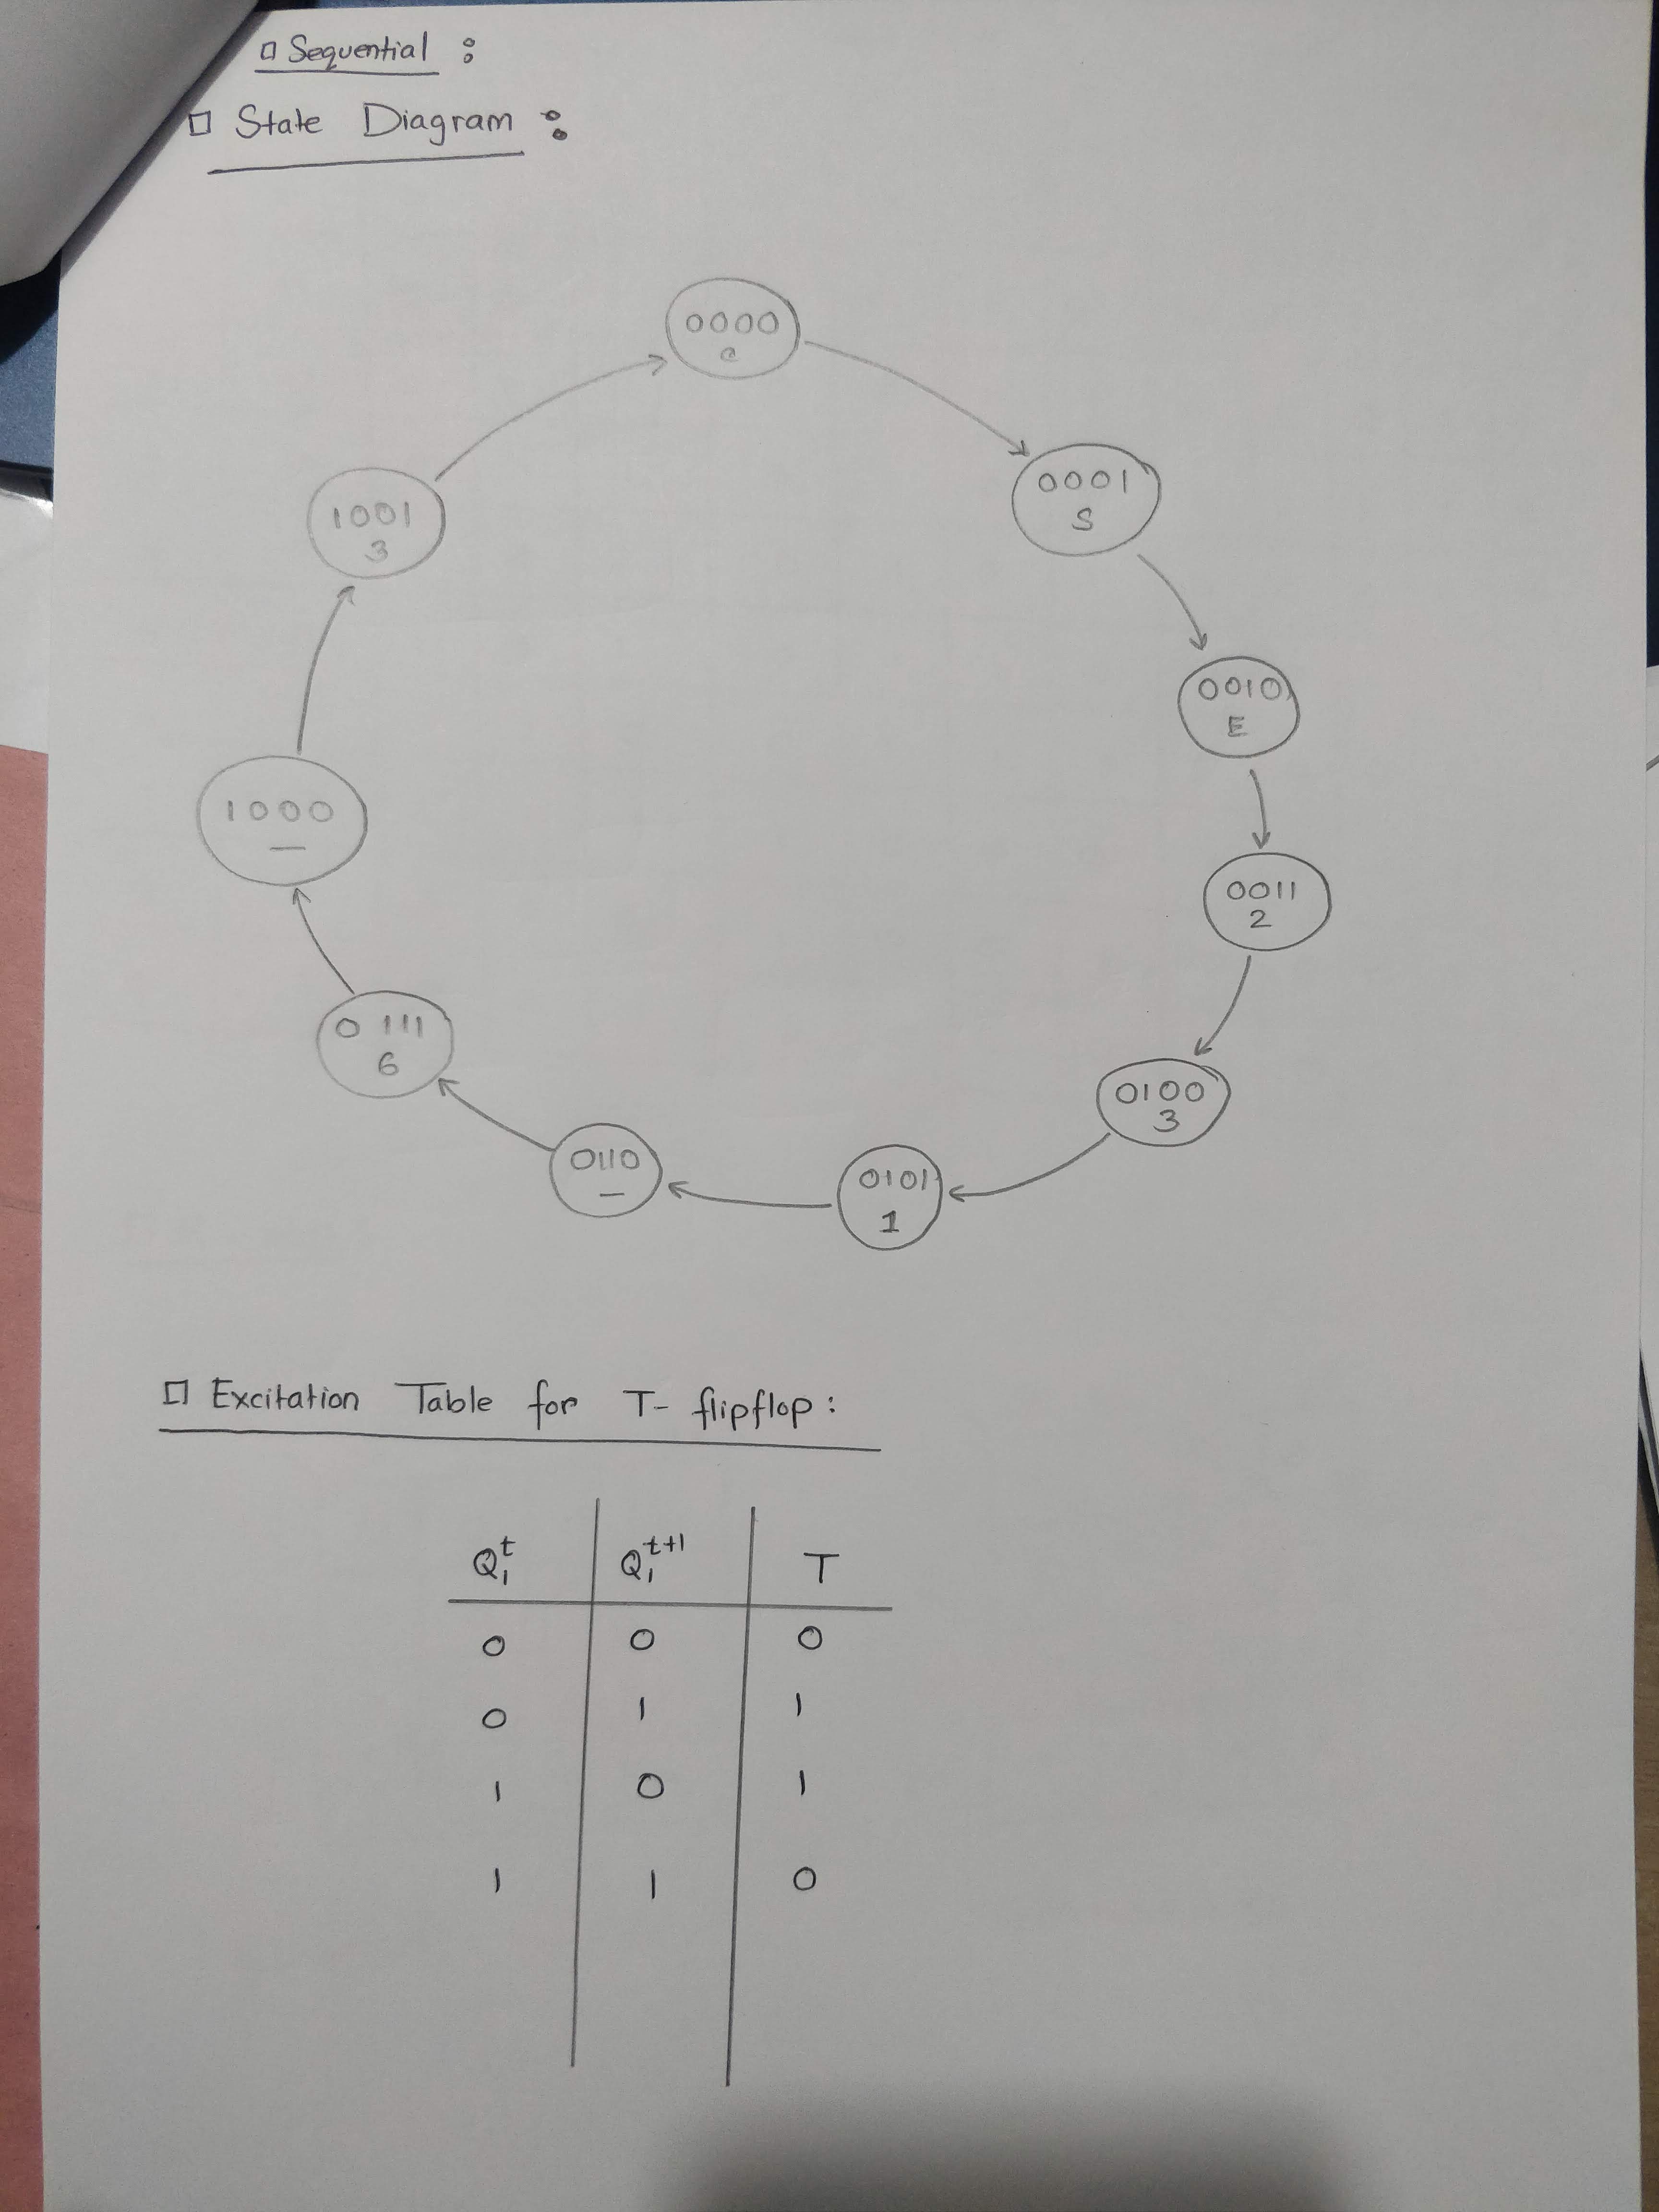 □ Sequential :
□ State Diagram :
0000
C
0001
S
0010
E
0011
2
0100
3
0101
1
0110
—
0111
6
1000
—
1001
3
□ Excitation Table for T- flipflop:
Q₁ᵗ Q₁ᵗ⁺¹ T
0 0 0
0 1 1
1 0 1
1 1 0